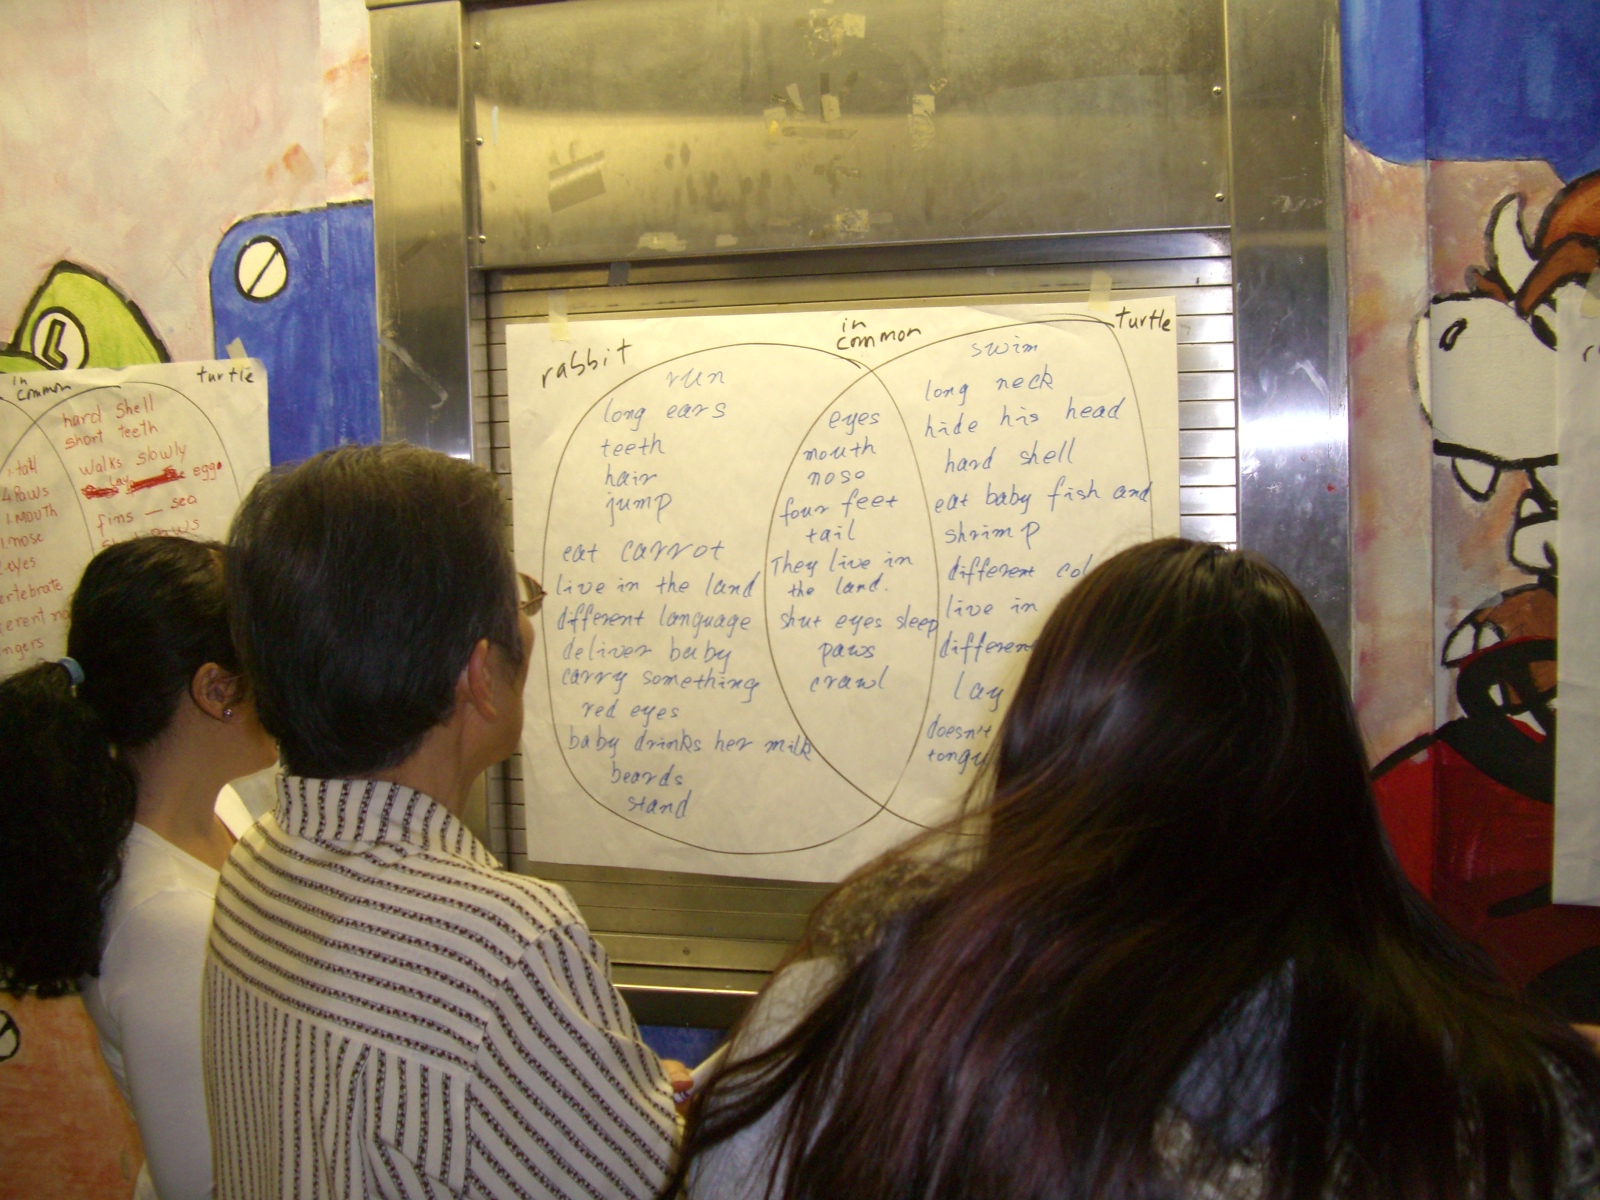 L
in
common
turtle
hard shell
short teeth
walks slowly
egg
fins - sea
4 Paws
1. MOUTH
1. nose
eyes
rabbit
in
common
turtle
run
long ears
teeth
hair
jump
eat carrot
live in the land
different language
deliver baby
carry something
red eyes
baby drinks her milk
beards
stand
eyes
mouth
nose
four feet
tail
They live in
the land.
shut eyes sleep
paws
crawl
swim
long neck
hide his head
hard shell
eat baby fish and
shrimp
different
live in
lay
doesn't